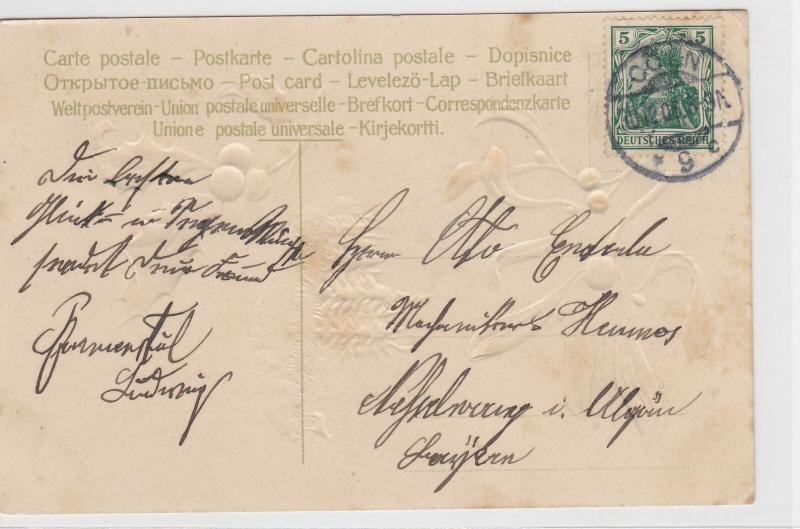 Carte postale – Postkarte – Cartolina postale – Dopisnice
Открытое-письмо – Post card – Levelezö-Lap – Briefkaart
Weltpostverein-Union postale universelle-Brefkort-Correspondenzkarte
Unione postale universale-Kirjekortti.
5 5
DEUTSCHES REICH
CÖLN
9 c
Die besten
Glück- u
sendet Dein Freund
Ludwig
Herrn Otto
Mechaniker
Nesselwang i. Algäu
Bayern